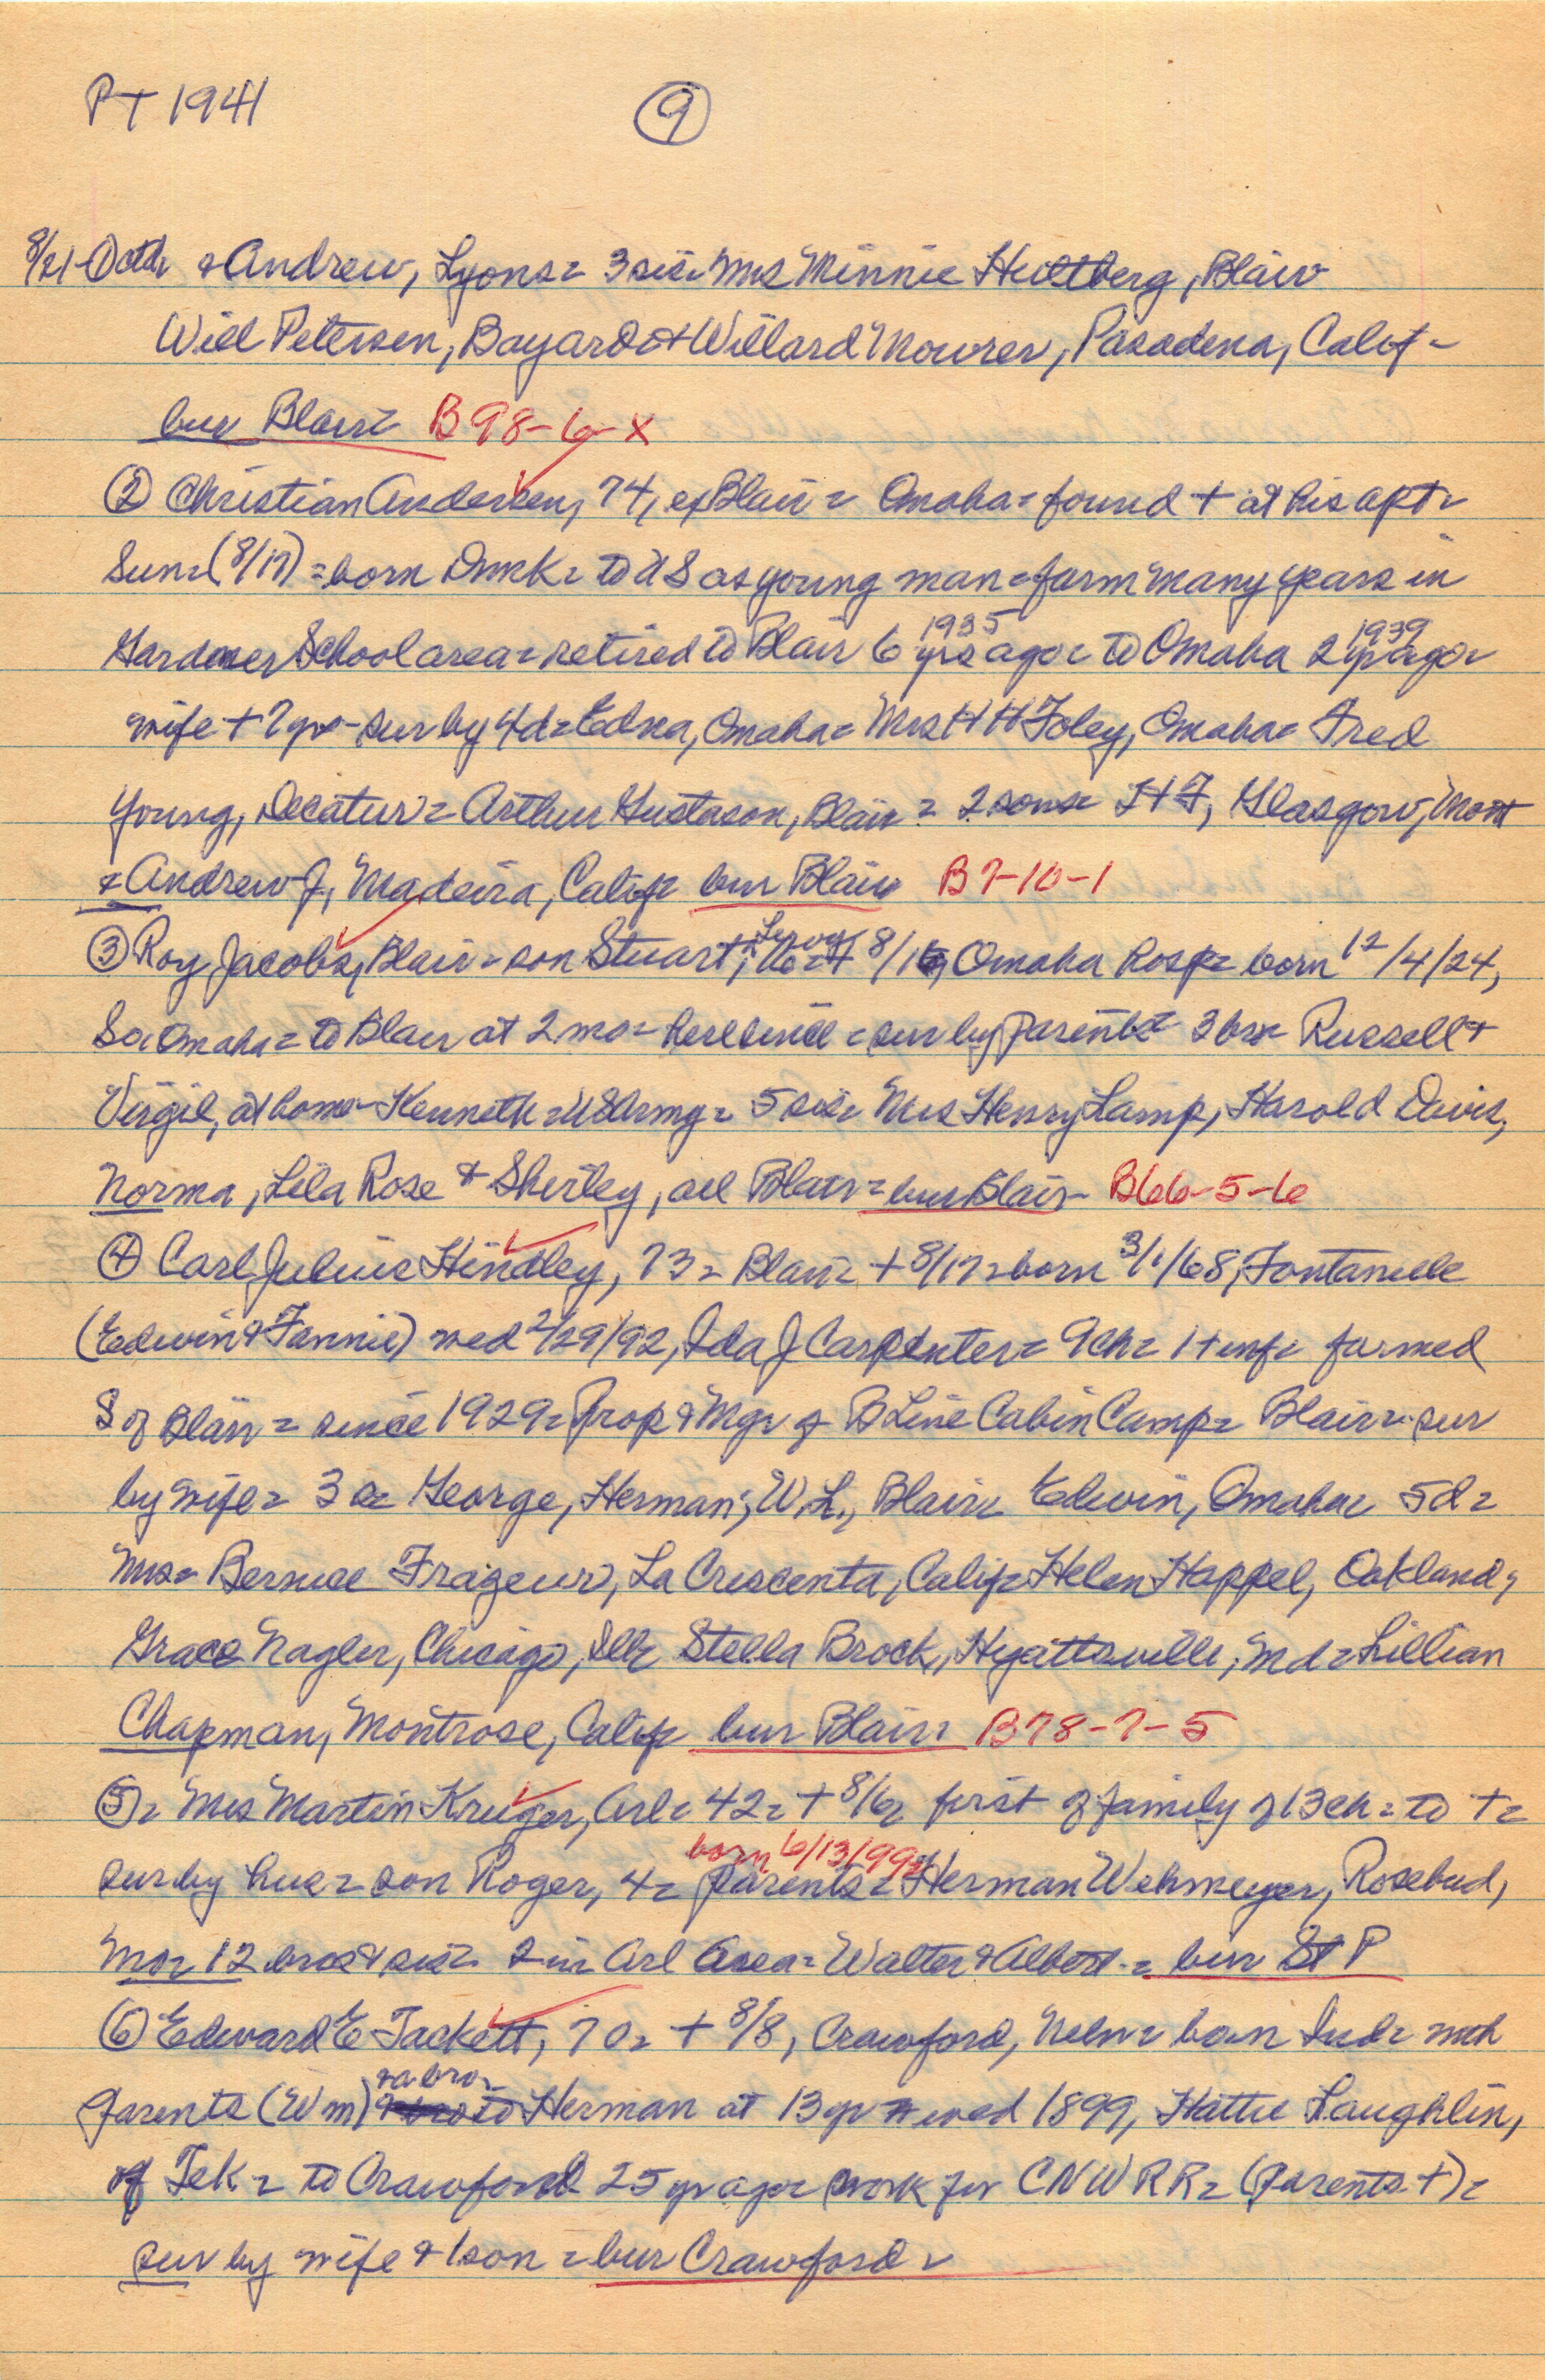 PT 1941
9
8/21 ① ctd= & Andrew, Lyons= 3 sis= Mrs Minnie Hultberg, Blair
Will Petersen, Bayard & Willard Mowrer, Pasadena, Calif=
bur Blair= B98-6-X
② Christian Andersen, 74, ex Blair = Omaha= found + at his apt=
Sun= (8/17) = born Dmk= to US as young man= farm many years in
Gardner School area= retired to Blair 6 yrs ago= to Omaha 2 yr ago=
1935 1939
wife + 7 yr= sur by 4d= Edna, Omaha= Mrs H H Foley, Omaha= Fred
Young, Decatur= Arthur Gustason, Blair = 2 sons= H F, Glasgow, Mont
& Andrew J, Madeira, Calif= bur Blair B7-10-1
③ Roy Jacobs, Blair= son Stuart, Leroy 16= + 8/16, Omaha Hosp= born 12/4/24,
So Omaha= to Blair at 2 mo= here since = sur by parents= 3 bro= Russell &
Virgil, at home= Kenneth= US Army= 5 sis= Mrs Henry Lamp, Harold Davis,
Norma, Lila Rose & Shirley, all Blair= bur Blair= B66-5-6
④ Carl Julius Hindley, 73= Blair= + 8/17= born 3/1/68, Fontanelle
(Edwin & Fannie) wed 2/29/92, Ida J Carpenter= 9 ch= 1 + inf= farmed
S of Blair = since 1929= Prop & Mgr of B Line Cabin Camp= Blair= sur
by wife= 3 s= George, Herman, W.L., Blair= Edwin, Omaha= 5d=
Mrs= Bernice Frazeur, La Crescenta, Calif= Helen Happel, Oakland,
Grace Nagler, Chicago, Ill= Stella Brock, Hyattsville, Md= Lillian
Chapman, Montrose, Calif= bur Blair= B78-7-5
⑤= Mrs Martin Kruger, Arl= 42= + 8/6= first of family of 13 ch= to +=
born 6/13/99
sur by hus= son Roger, 4= parents= Herman Wehmeyer, Rosebud,
Mo= 12 bros & sis= 2 in Arl area= Walter & Albert= bur St P
⑥ Edward E Tackett, 70= + 8/8, Crawford, Neb= born Ind= with
parents (Wm) & a bro= to Herman at 13 yr= wed 1899, Hattie Laughlin,
of Tek= to Crawford 25 yr ago= work for CNW RR= (Parents +)=
sur by wife & 1 son = bur Crawford=